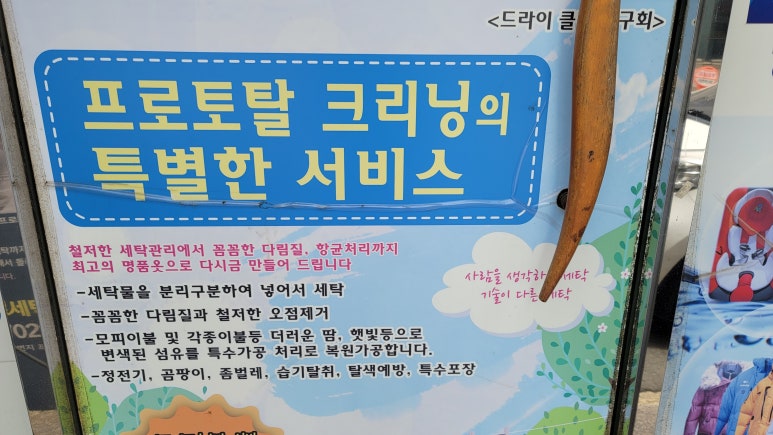 <드라이 클 구회>
프로토탈 크리닝의
특별한 서비스
철저한 세탁관리에서 꼼꼼한 다림질, 항균처리까지
최고의 명품옷으로 다시금 만들어 드립니다
사람을 생각하 세탁
기술이 다른 세탁
-세탁물을 분리구분하여 넣어서 세탁
-꼼꼼한 다림질과 철저한 오점제거
-모피이불 및 각종이불등 더러운 땀, 햇빛등으로
변색된 섬유를 특수가공 처리로 복원가공합니다.
-정전기, 곰팡이, 좀벌레, 습기탈취, 탈색예방, 특수포장